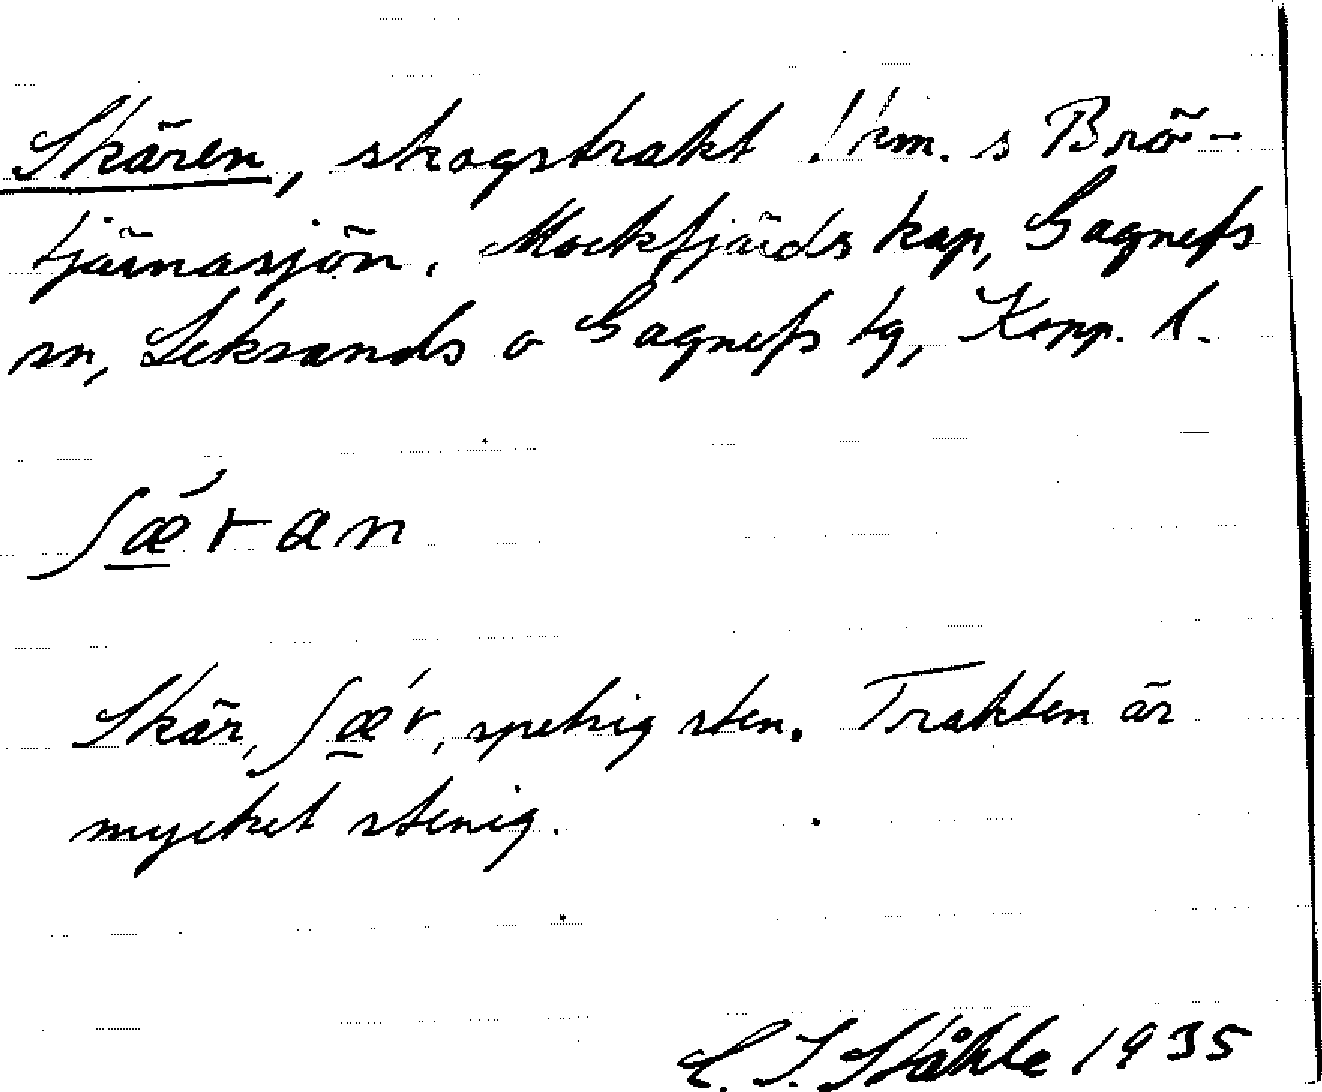 Skären, skogstrakt 1 km. s Brö-
tjärnasjön. Mockfjärds kap, Gagnefs
sn, Leksands o Gagnefs tg, Kopp. l.
ʃǽ̲ran
Skär, ʃǽ̲r, spetsig sten. Trakten är
mycket stenig.
C. I. Ståhle 1935